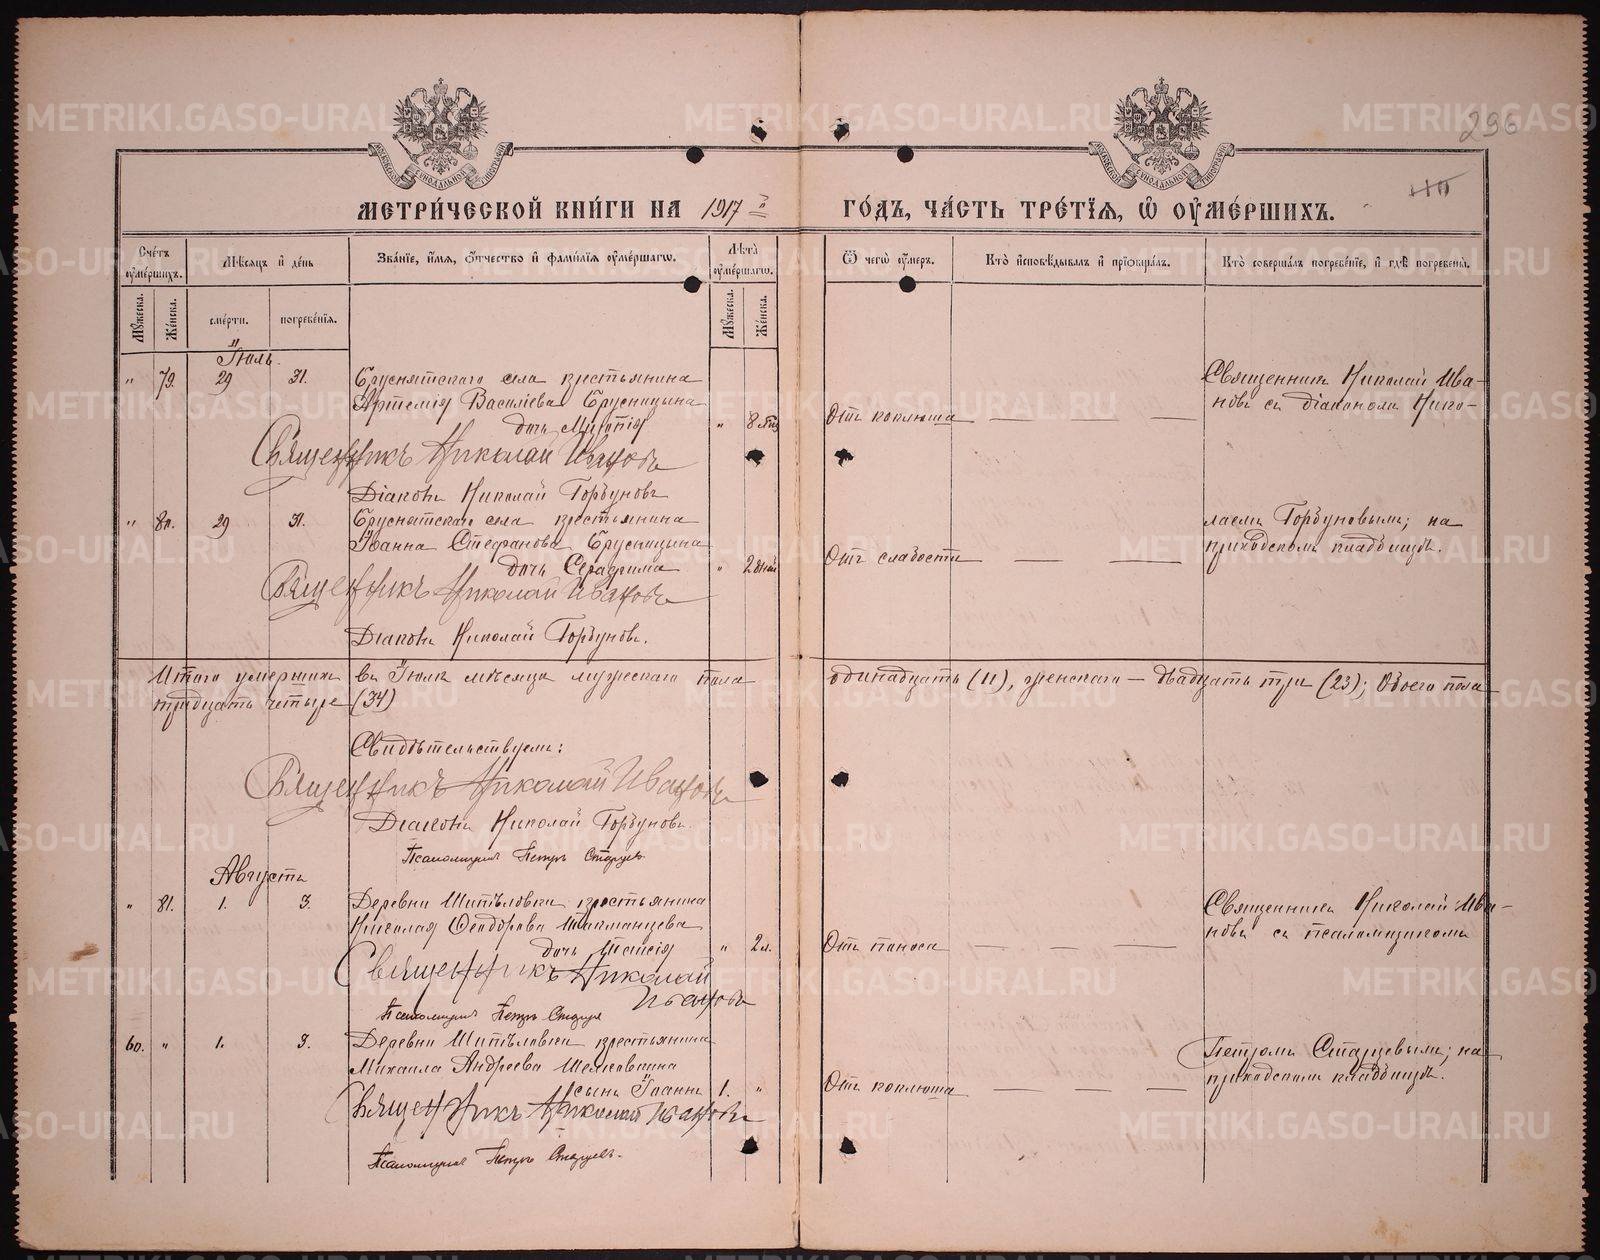 296
МЕТРИЧЕСКОЙ КНИГИ НА 1917 й ГОДЪ, ЧАСТЬ ТРЕТІЯ, Ѡ ОУМЕРШИХЪ.
Счетъ оумершихъ.
Мѣсяцъ и день
Званіе, имя, отчество и фамилія оумершагѡ.
Лѣта оумершагѡ.
Ѿ чегѡ оумеръ.
Кто исповѣдывалъ и пріобщалъ.
Кто совершалъ погребеніе, и гдѣ погребены.
Мужеска.
Женска.
смерти.
погребенія.
Мужеска.
Женска.
Іюль.
" 79. 29 31. Бруснятскаго села крестьянина
Артемія Васильева Брусницына
дочь
" 8
Отъ коклюша
Священникъ Николай Ива-
новъ съ діакономъ Нико-
Священникъ Николай Ивановъ
Діаконъ Николай Горбуновъ
" 80. 29 31. Бруснятскаго села крестьянина
Іоанна Стефанова Брусницына
дочь Серафима
" 2 дней
Отъ слабости
лаемъ Горбуновымъ; на
приходскомъ кладбищѣ.
Священникъ Николай Ивановъ
Діаконъ Николай Горбуновъ.
Итого умершихъ въ Іюлѣ мѣсяцѣ мужескаго пола одинадцать (11), женскаго — двадцать три (23); обоего пола
тридцать четыре (34)
Свидѣтельствуемъ:
Священникъ Николай Ивановъ
Діаконъ Николай Горбуновъ.
Псаломщикъ Петръ Старцевъ
Августъ
" 81. 1. 3. Деревни Шипѣловки крестьянина
Николая Ѳеодорова
дочь Таисія
" 2 л.
Отъ поноса
Священникъ Николай Ива-
новъ съ псаломщикомъ
Священникъ Николай
Ивановъ
Псаломщикъ Петръ Старцевъ
60. " 1. 3. Деревни Шипѣловки крестьянина
Михаила Андреева
сынъ Іоаннъ
1. "
Отъ коклюша
Петромъ Старцевымъ; на
приходскомъ кладбищѣ.
Священникъ Николай Ивановъ
Псаломщикъ Петръ Старцевъ.
METRIKI.GASO-URAL.RU